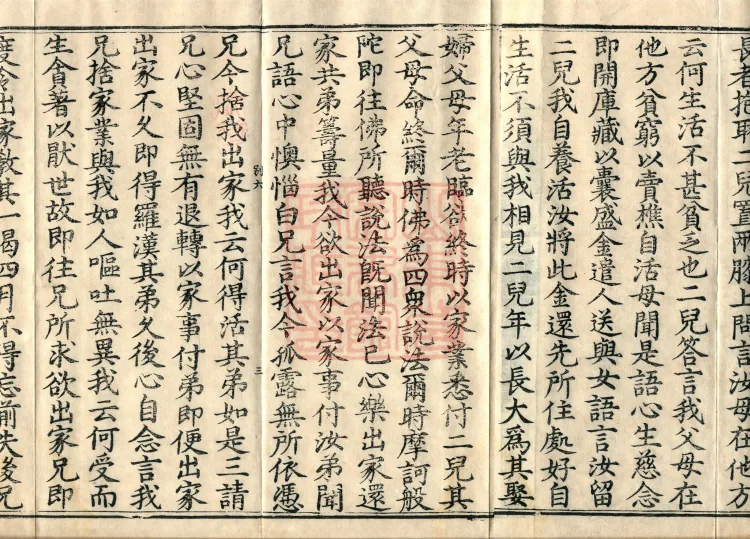 長者抱取二兒置兩膝上問言汝母在他方
云何生活不甚貧乏也二兒答言我父母在
他方貧窮以賣樵自活母聞是語心生慈念
即開庫藏以囊盛金遣人送與女語言汝留
二兒我自養活汝將此金還先所住處好自
生活不須與我相見二兒年以長大爲其娶
婦父母年老臨欲終時以家業悉付二兒其
父母命終爾時佛爲四衆說法爾時摩訶般
陀即往佛所聽說法旣聞法已心樂出家還
家共弟籌量我今欲出家以家事付汝弟聞
兄語心中懊惱白兄言我今孤露無所依憑
別六
三
兄今捨我出家我云何得活其弟如是三請
兄心堅固無有退轉以家事付弟即便出家
出家不久即得羅漢其弟久後心自念言我
兄捨家業與我如人嘔吐無異我云何受而
生貪著以猒世故即往兄所求欲出家兄即
度令出家敎其一偈四月不得忘前失後兄